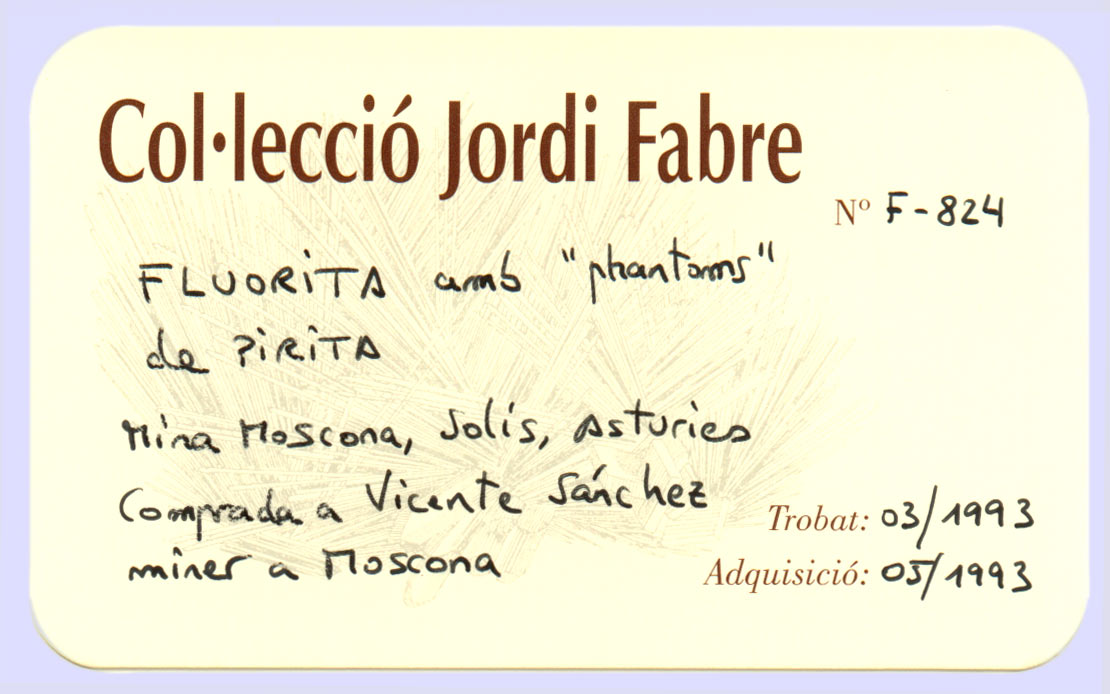 Col·lecció Jordi Fabre
Nº F-824
FLUORITA amb "phantoms"
de PIRITA
Mina Moscona, Solís, Asturies
Comprada a Vicente Sánchez
miner a Moscona
Trobat: 03/1993
Adquisició: 05/1993